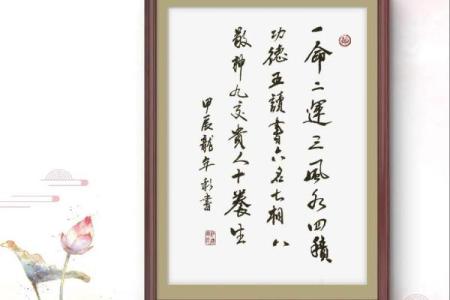 一命二運三風水四積
功德五讀書六名七相八
敬神九交貴人十養生
甲辰龍年彩書